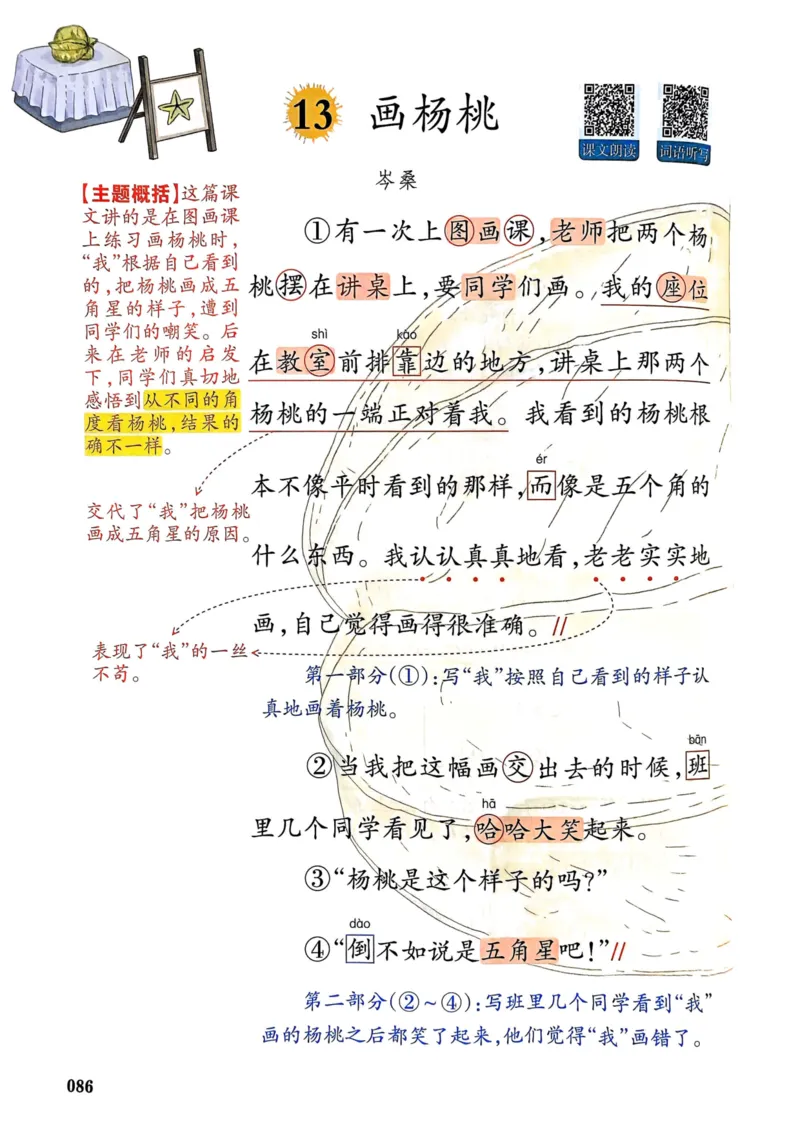 13 画杨桃
课文朗读
词语听写
岑桑
【主题概括】这篇课
文讲的是在图画课
上练习画杨桃时，
“我”根据自己看到
的，把杨桃画成五
角星的样子，遭到
同学们的嘲笑。后
来在老师的启发
下，同学们真切地
感悟到从不同的角
度看杨桃，结果的
确不一样。
交代了“我”把杨桃
画成五角星的原因。
表现了“我”的一丝
不苟。
①有一次上图画课，老师把两个杨
桃摆在讲桌上，要同学们画。我的座位
shì kào
在教室前排靠边的地方，讲桌上那两个
杨桃的一端正对着我。我看到的杨桃根
ér
本不像平时看到的那样，而像是五个角的
什么东西。我认认真真地看，老老实实地
画，自己觉得画得很准确。//
第一部分(①)：写“我”按照自己看到的样子认
真地画着杨桃。
bān
②当我把这幅画交出去的时候，班
hā
里几个同学看见了，哈哈大笑起来。
③“杨桃是这个样子的吗？”
dào
④“倒不如说是五角星吧！”//
第二部分(②~④)：写班里几个同学看到“我”
画的杨桃之后都笑了起来，他们觉得“我”画错了。
086